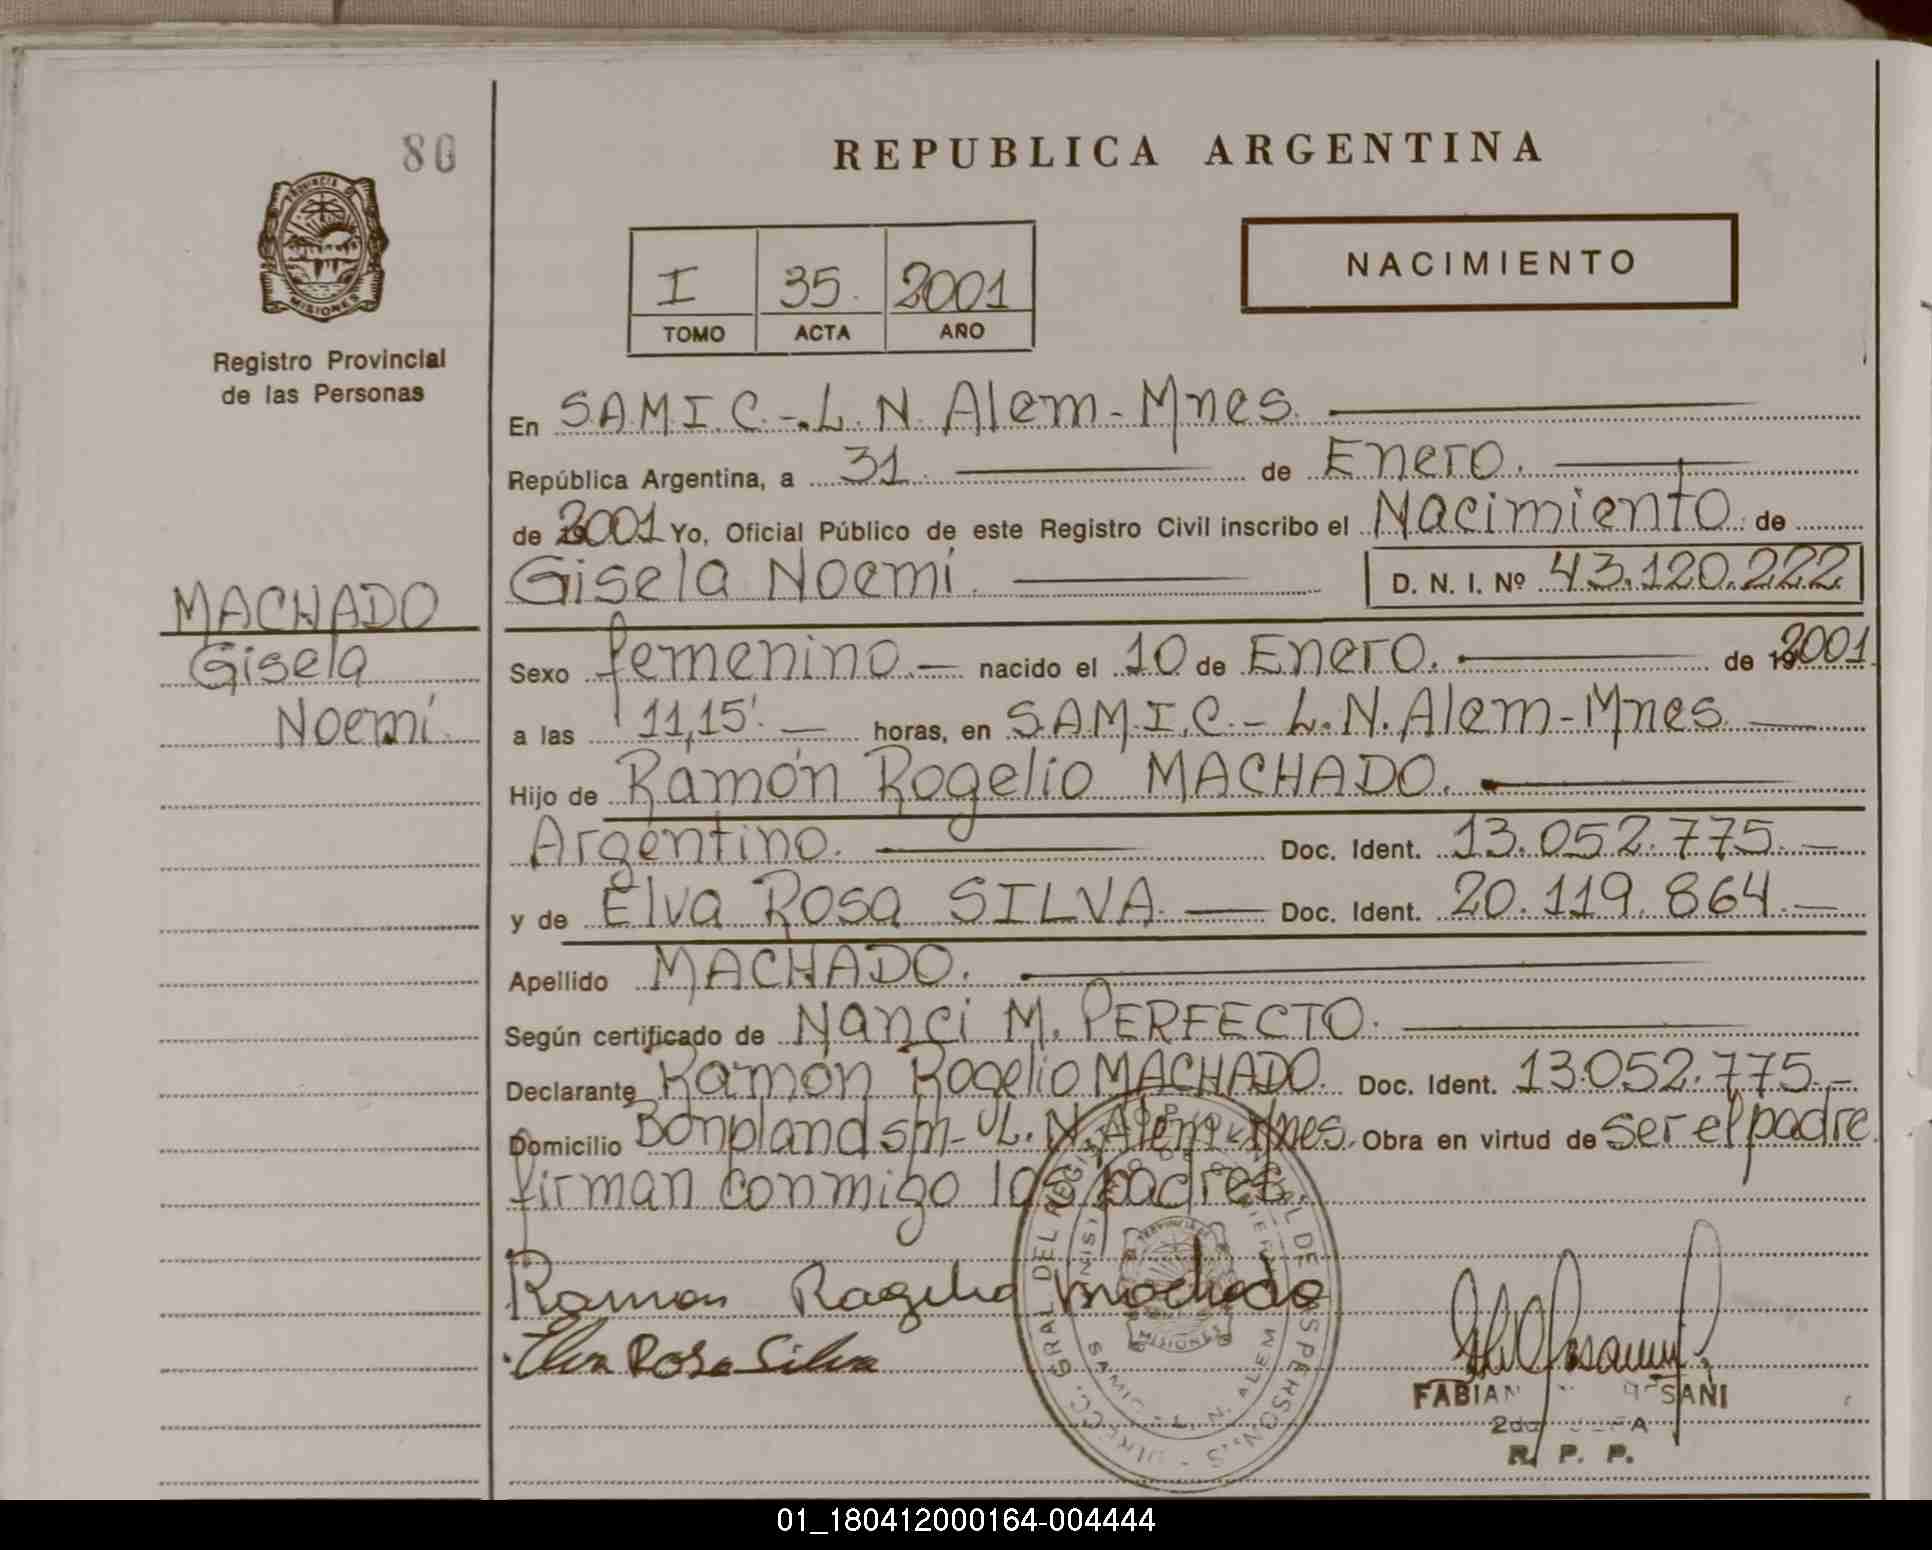 80
REPUBLICA ARGENTINA
PROVINCIA DE
MISIONES
Registro Provincial
de las Personas
I 35. 2001
TOMO ACTA AÑO
NACIMIENTO
En S.A.M.I.C.-L.N. Alem-Mnes.
República Argentina, a 31. de Enero.
de 2001 Yo, Oficial Público de este Registro Civil inscribo el Nacimiento de
Gisela Noemí. D. N. I. Nº 43.120.222
MACHADO
Gisela
Noemí.
Sexo femenino.- nacido el 10 de Enero. de 192001
a las 11,15'. horas, en S.A.M.I.C.- L.N. Alem-Mnes.
Hijo de Ramón Rogelio MACHADO.
Argentino. Doc. Ident. 13.052.775.-
y de Elva Rosa SILVA. Doc. Ident. 20.119.864.-
Apellido MACHADO.
Según certificado de Nanci M. PERFECTO.
Declarante Ramón Rogelio MACHADO. Doc. Ident. 13.052.775.-
Domicilio Bonpland s/n- L.N. Alem Mnes. Obra en virtud de ser el padre
firman conmigo los padres.
Ramon Rogelio Machado
Elva Rosa Silva
SAMIC - L. N. ALEM
PROVINCIA DE
MISIONES
FABIAN SANI
2da
R. P. P.
01_180412000164-004444